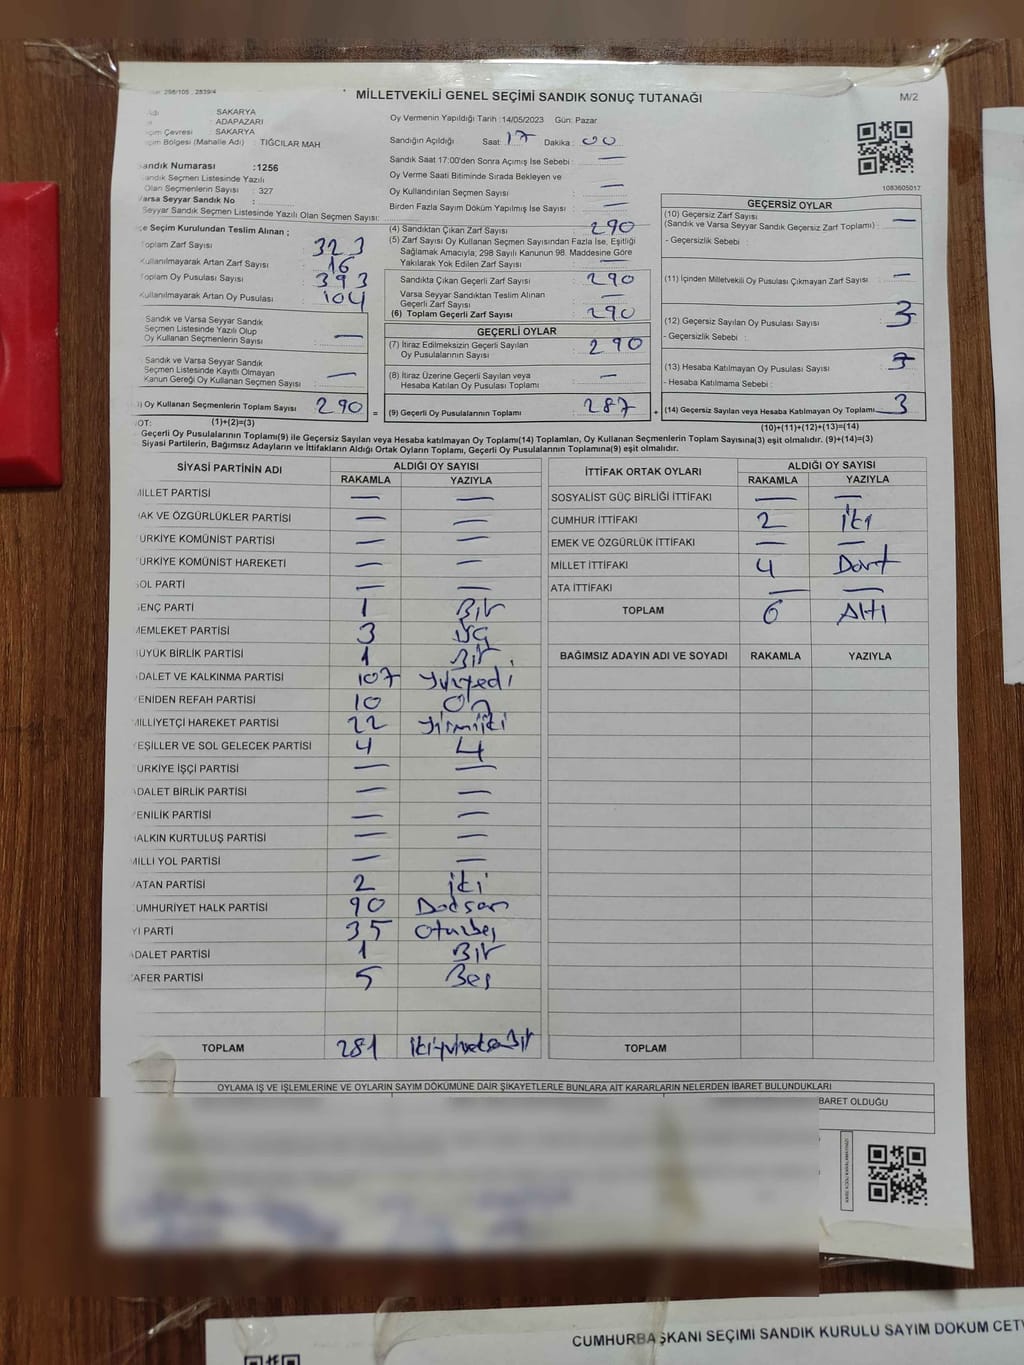 298/105 , 2839/4
MİLLETVEKİLİ GENEL SEÇİMİ SANDIK SONUÇ TUTANAĞI
M/2
SAKARYA
ADAPAZARI
Çevresi : SAKARYA
Bölgesi (Mahalle Adı) : TIĞCILAR MAH
Oy Vermenin Yapıldığı Tarih : 14/05/2023 Gün: Pazar
Sandığın Açıldığı Saat : 17 Dakika : 00
Sandık Saat 17:00'den Sonra Açımış İse Sebebi : —
Oy Verme Saati Bitiminde Sırada Bekleyen ve
Oy Kullandırılan Seçmen Sayısı : —
Birden Fazla Sayım Döküm Yapılmış İse Sayısı : —
1083605017
andık Numarası :1256
andık Seçmen Listesinde Yazılı
Olan Seçmenlerin Sayısı : 327
arsa Seyyar Sandık No :
Seyyar Sandık Seçmen Listesinde Yazılı Olan Seçmen Sayısı:
çe Seçim Kurulundan Teslim Alınan ;
oplam Zarf Sayısı : 323
ullanılmayarak Artan Zarf Sayısı : 16
oplam Oy Pusulası Sayısı : 393
ullanılmayarak Artan Oy Pusulası : 104
Sandık ve Varsa Seyyar Sandık
Seçmen Listesinde Yazılı Olup
Oy Kullanan Seçmenlerin Sayısı : —
Sandık ve Varsa Seyyar Sandık
Seçmen Listesinde Kayıtlı Olmayan
Kanun Gereği Oy Kullanan Seçmen Sayısı : —
) Oy Kullanan Seçmenlerin Toplam Sayısı : 290 =
(1)+(2)=(3)
(4) Sandıktan Çıkan Zarf Sayısı : 290
(5) Zarf Sayısı Oy Kullanan Seçmen Sayısından Fazla İse, Eşitliği
Sağlamak Amacıyla, 298 Sayılı Kanunun 98. Maddesine Göre
Yakılarak Yok Edilen Zarf Sayısı : —
Sandıkta Çıkan Geçerli Zarf Sayısı : 290
Varsa Seyyar Sandıktan Teslim Alınan
Geçerli Zarf Sayısı : —
(6) Toplam Geçerli Zarf Sayısı : 290
GEÇERLİ OYLAR
(7) İtiraz Edilmeksizin Geçerli Sayılan
Oy Pusulalarının Sayısı : 290
(8) İtiraz Üzerine Geçerli Sayılan veya
Hesaba Katılan Oy Pusulası Toplamı : —
(9) Geçerli Oy Pusulalarının Toplamı : 287 +
GEÇERSİZ OYLAR
(10) Geçersiz Zarf Sayısı
(Sandık ve Varsa Seyyar Sandık Geçersiz Zarf Toplamı) : —
- Geçersizlik Sebebi :
(11) İçinden Milletvekili Oy Pusulası Çıkmayan Zarf Sayısı : —
(12) Geçersiz Sayılan Oy Pusulası Sayısı : 3
- Geçersizlik Sebebi :
(13) Hesaba Katılmayan Oy Pusulası Sayısı :
- Hesaba Katılmama Sebebi :
(14) Geçersiz Sayılan veya Hesaba Katılmayan Oy Toplamı : 3
(10)+(11)+(12)+(13)=(14)
OT:
Geçerli Oy Pusulalarının Toplamı(9) ile Geçersiz Sayılan veya Hesaba katılmayan Oy Toplamı(14) Toplamları, Oy Kullanan Seçmenlerin Toplam Sayısına(3) eşit olmalıdır. (9)+(14)=(3)
Siyasi Partilerin, Bağımsız Adayların ve İttifakların Aldığı Ortak Oyların Toplamı, Geçerli Oy Pusulalarının Toplamına(9) eşit olmalıdır.
SİYASİ PARTİNİN ADI ALDIĞI OY SAYISI
RAKAMLA YAZIYLA
MİLLET PARTİSİ — —
AK VE ÖZGÜRLÜKLER PARTİSİ — —
ÜRKİYE KOMÜNİST PARTİSİ — —
ÜRKİYE KOMÜNİST HAREKETİ — —
OL PARTİ — —
ENÇ PARTİ 1 Bir
MEMLEKET PARTİSİ 3 Üç
ÜYÜK BİRLİK PARTİSİ 1 Bir
DALET VE KALKINMA PARTİSİ 107 Yüzyedi
ENİDEN REFAH PARTİSİ 10 On
MİLLİYETÇİ HAREKET PARTİSİ 22 Yirmiiki
EŞİLLER VE SOL GELECEK PARTİSİ 4 4
ÜRKİYE İŞÇİ PARTİSİ — —
DALET BİRLİK PARTİSİ — —
ENİLİK PARTİSİ — —
ALKIN KURTULUŞ PARTİSİ — —
MİLLİ YOL PARTİSİ — —
VATAN PARTİSİ 2 iki
UMHURİYET HALK PARTİSİ 90 Doksan
Yİ PARTİ 35 Otuzbeş
DALET PARTİSİ 1 Bir
AFER PARTİSİ 5 Beş
TOPLAM 281 ikiyüzseksenBir
İTTİFAK ORTAK OYLARI ALDIĞI OY SAYISI
RAKAMLA YAZIYLA
SOSYALİST GÜÇ BİRLİĞİ İTTİFAKI — —
CUMHUR İTTİFAKI 2 iki
EMEK VE ÖZGÜRLÜK İTTİFAKI — —
MİLLET İTTİFAKI 4 Dört
ATA İTTİFAKI — —
TOPLAM 6 Altı
BAĞIMSIZ ADAYIN ADI VE SOYADI RAKAMLA YAZIYLA
TOPLAM
OYLAMA İŞ VE İŞLEMLERİNE VE OYLARIN SAYIM DÖKÜMÜNE DAİR ŞİKAYETLERLE BUNLARA AİT KARARLARIN NELERDEN İBARET BULUNDUKLARI
BARET OLDUĞU
CUMHURBAŞKANI SEÇİMİ SANDIK KURULU SAYIM DÖKÜM CETV